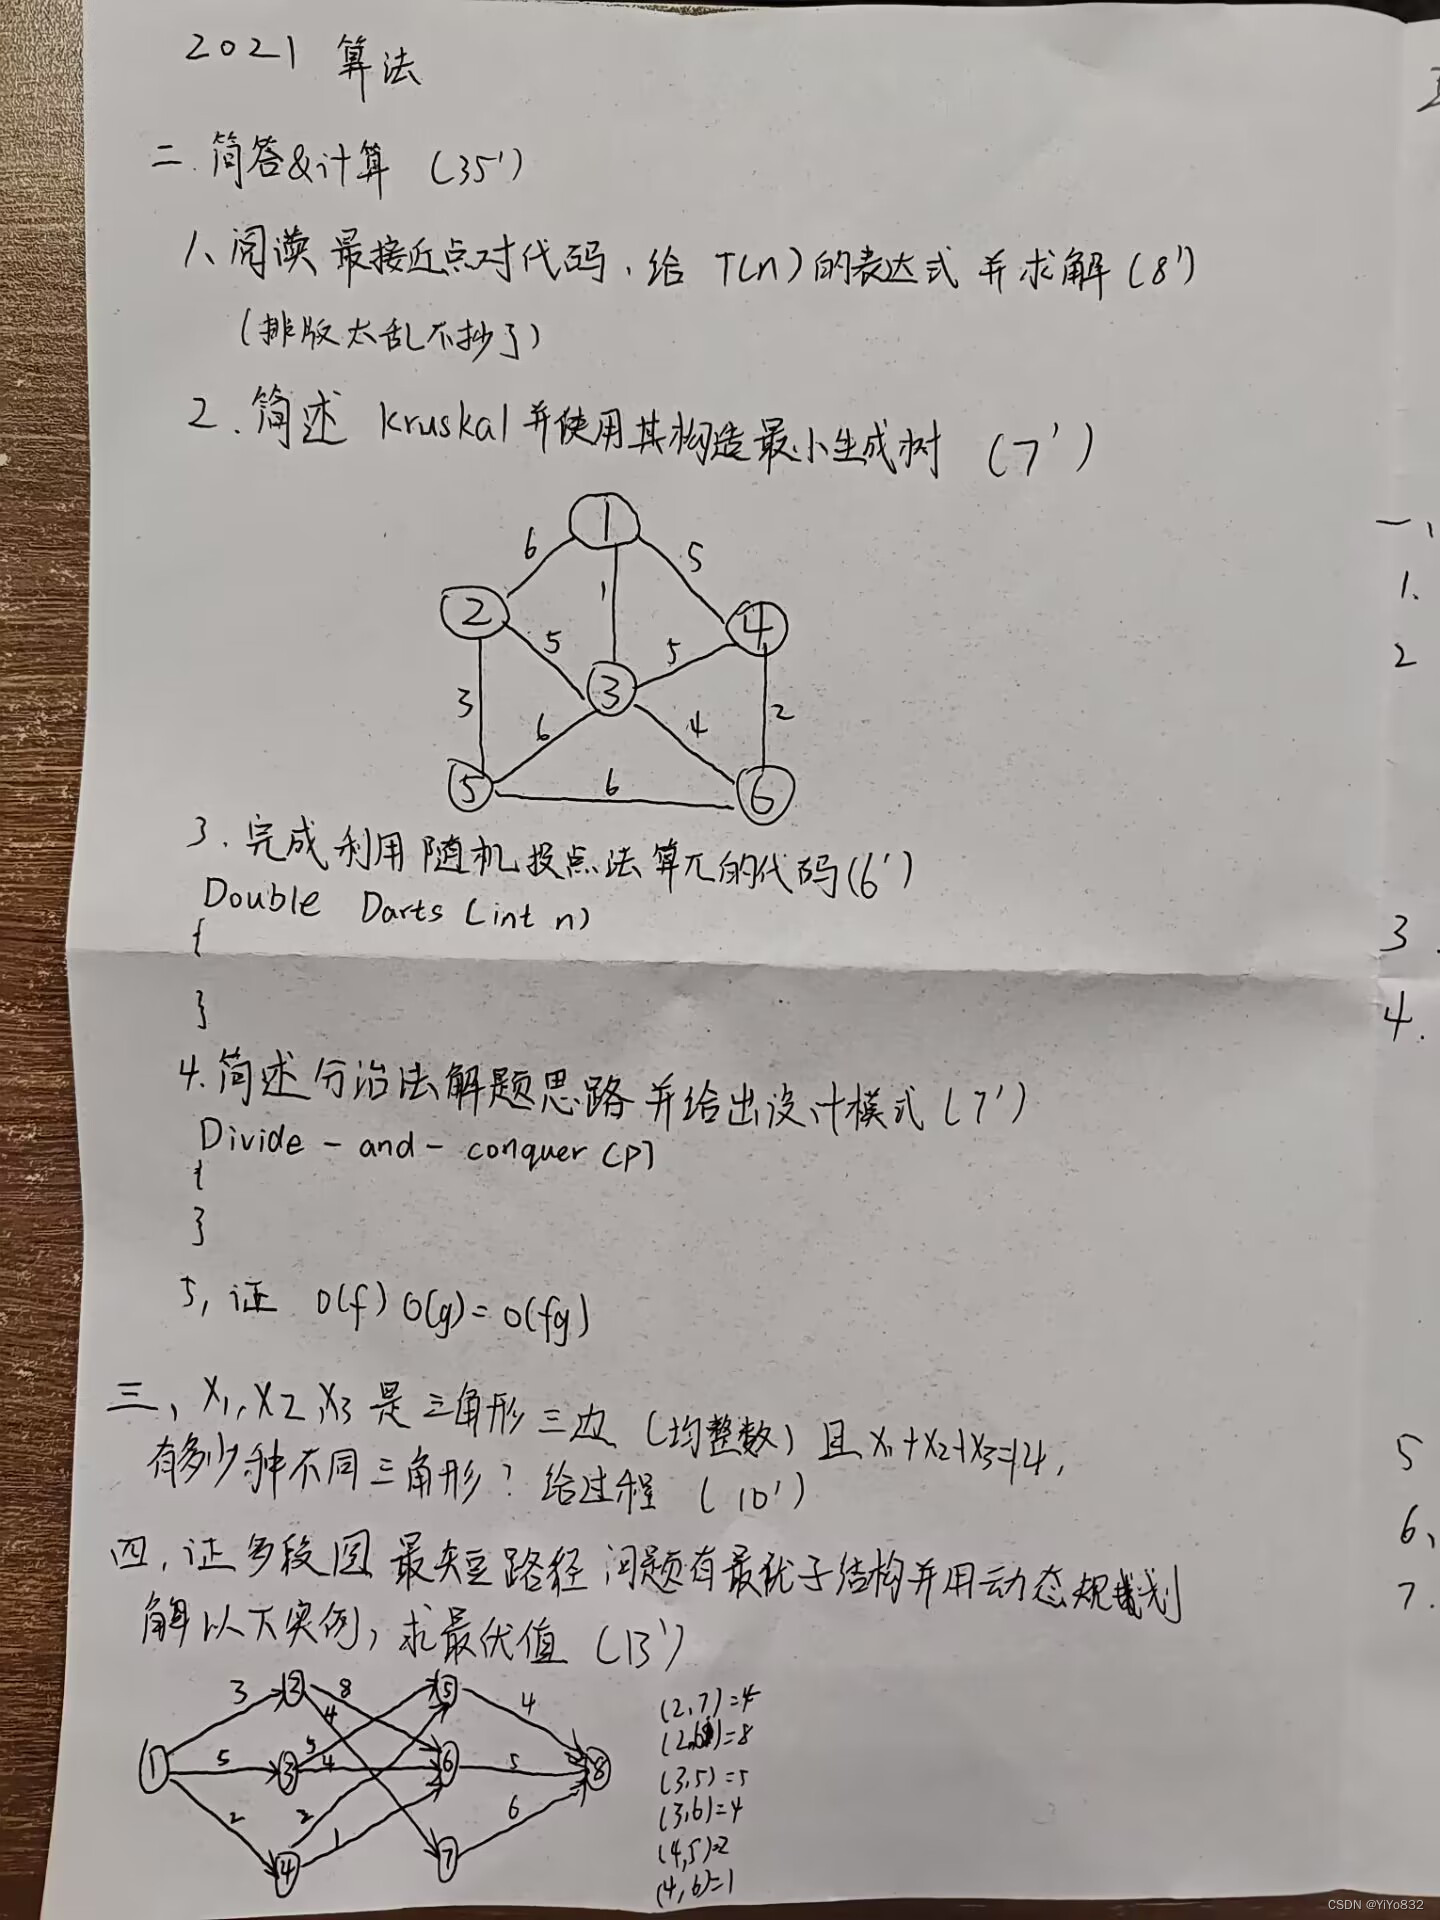 2021 算法
二. 简答&计算 (35')
1、阅读最接近点对代码，给 T(n)的表达式并求解(8')
(排版太乱不抄了)
2. 简述 kruskal并使用其构造最小生成树 (7')
1
6
5
2
1
4
5
5
3
3
2
6
4
5
6
6
3. 完成利用随机投点法算π的代码(6')
Double Darts (int n)
{
}
4. 简述分治法解题思路并给出设计模式(7')
Divide-and-conquer (P)
{
}
5, 证 O(f)O(g)=O(fg)
三、X1,X2,X3是三角形三边(均整数)且X1+X2+X3=14,
有多少种不同三角形? 给过程 (10')
四, 证多段图最短路径问题有最优子结构并用动态规划
解以下实例, 求最优值 (13')
3 2 8 5 4
4
1 5 3 5 4 6 5 8
2 2 1 6
4 7
(2,7)=4
(2,6)=8
(3,5)=5
(3,6)=4
(4,5)=2
(4,6)=1
一、
1.
2
3.
4.
5
6、
7.
CSDN @YiYo832